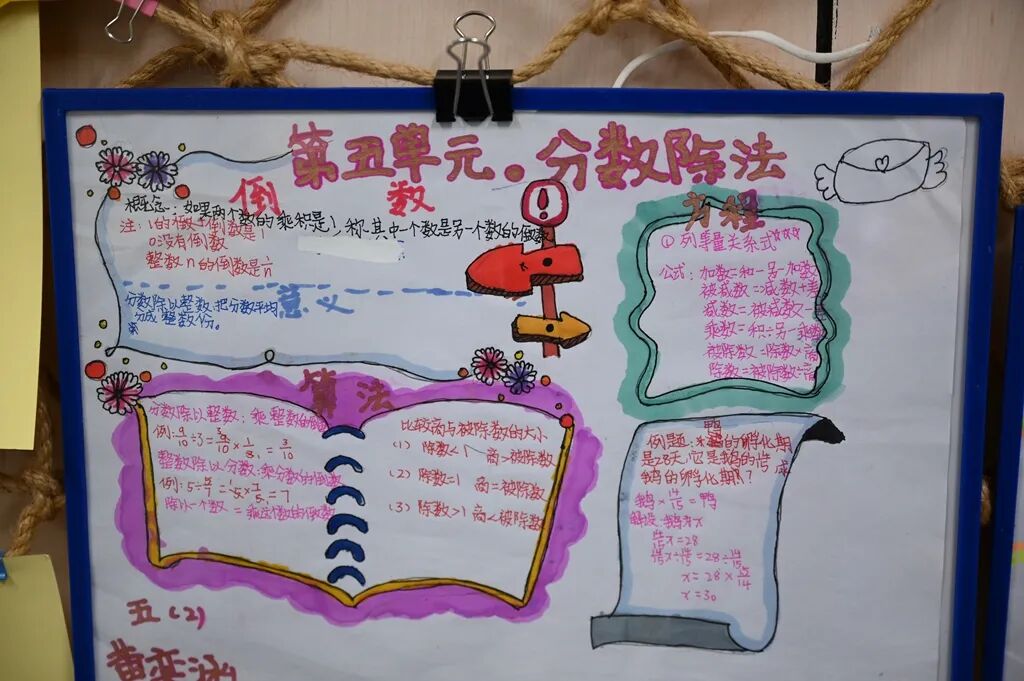 第五单元。分数除法
倒 数
概念:如果两个数的乘积是1,称其中一个数是另一个数的倒数
注:1的倒数是1
0没有倒数
整数n的倒数是1/n
意义
分数除以整数:把分数平均
分成整数份。
算法
分数除以整数:乘整数的倒数
例:9/10÷3=9/10×1/3=3/10
整数除以分数:乘分数的倒数
例:5÷5/7=5×7/5=7
除以一个数=乘这个数的倒数
比较商与被除数的大小
(1) 除数<1 商>被除数
(2) 除数=1 商=被除数
(3) 除数>1 商<被除数
方程
① 列等量关系式
公式:加数=和-另一加数
被减数=减数+差
减数=被减数-
乘数=积÷另一乘数
被除数=除数×商
除数=被除数÷商
鸭
例题:的孵化期
是28天,它是鹅的14/15,
鹅的孵化期?
鹅×14/15=鸭
解设:鹅为x
14/15x=28
14/15x÷14/15=28÷14/15
x=28×15/14
x=30
五(2)
黄奕涵